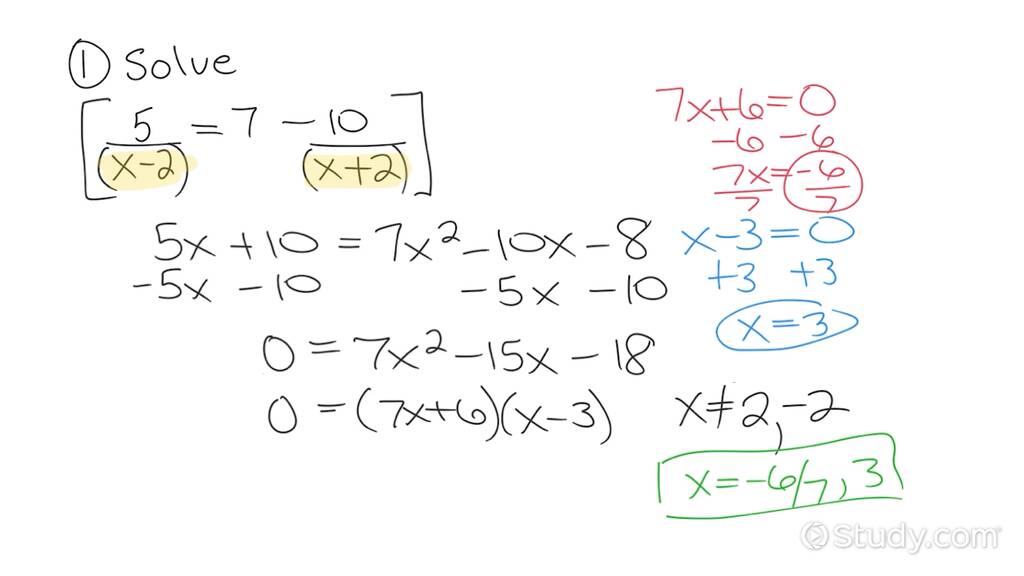 ① Solve
[5/(x-2) = 7 - 10/(x+2)]
5x + 10 = 7x² - 10x - 8
-5x - 10 - 5x - 10
0 = 7x² - 15x - 18
0 = (7x+6)(x-3)
7x+6=0
-6 -6
7x/7 = -6/7
x-3=0
+3 +3
x=3
x≠2,-2
x=-6/7, 3
Study.com